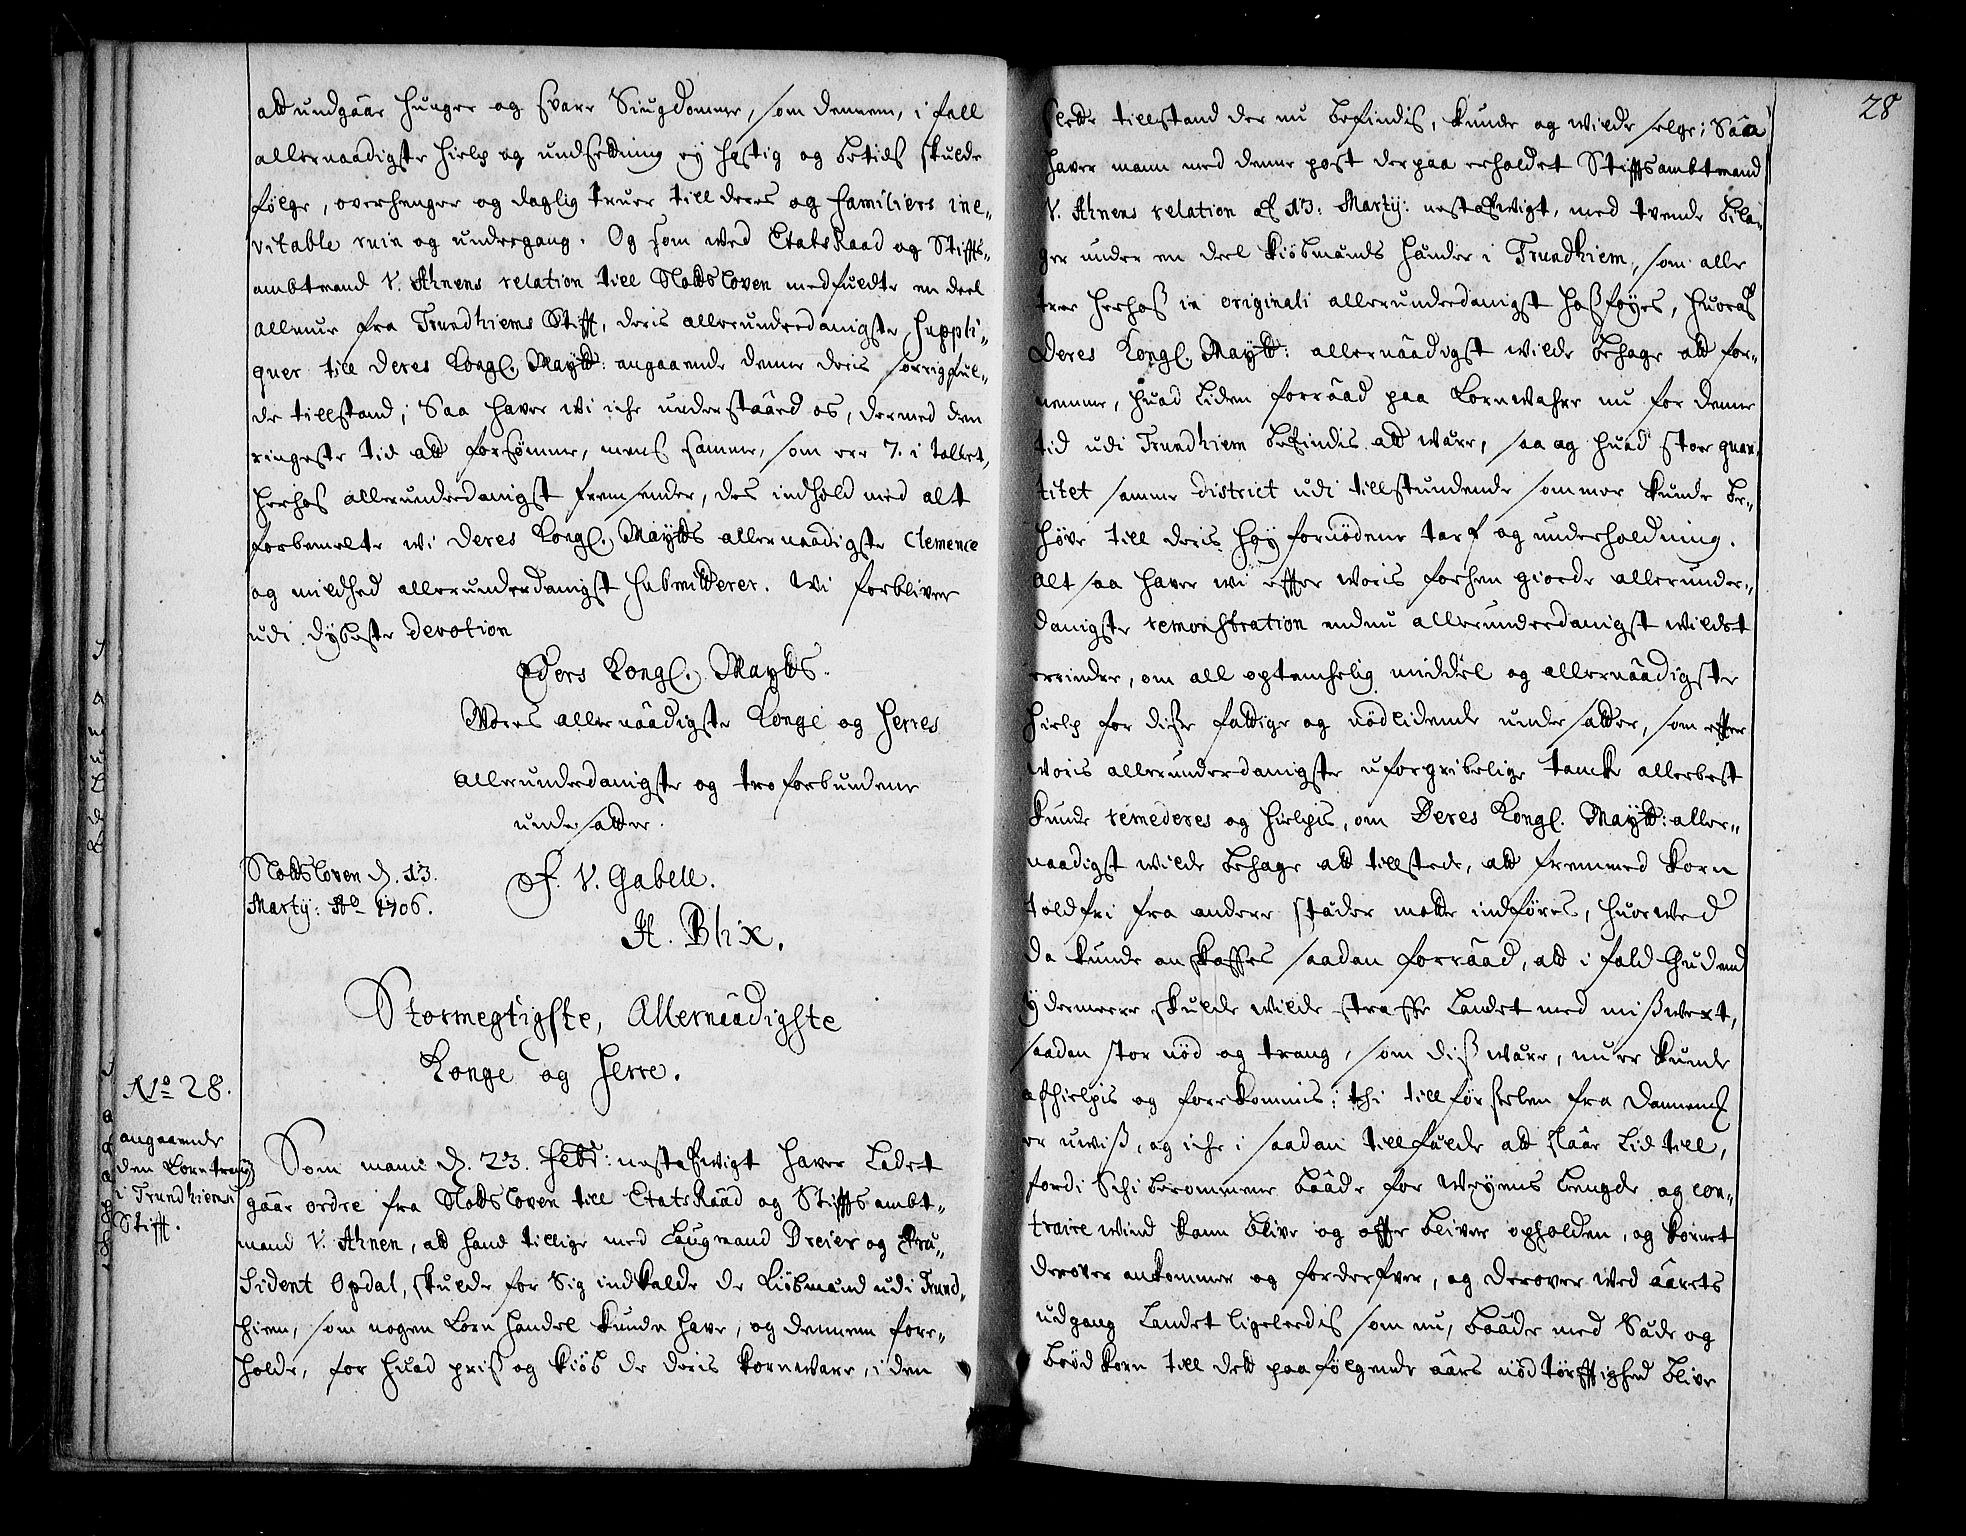 att undgaar hunger og svare Siugdomme, som dennem, i fall
allernaadigste hielp og undsettning ey hastig og betids skulde
følge, overhenger og daglig truer till deres og familiers ine„
vitable ruin og undergang. Og som med Etats Raad og Stiffts„
ambtmand V. Ahnens relation till Slottsloven medfuldte en deel
allmue fra Trundhiems Stifft, deris allerunderdanigste suppli„
quer till Deres Kongl. Maytt: angaaende denne deris sorrigful„
de tillstand; Saa haver wi iche understaaed os, dermed den
ringeste tid att forsømme, mens samme, som ere 7. i tallet,
herhos allerunderdanigst fremsender, des indhold med alt
forbemelte wi Deres Kongl. Maytts allernaadigste Clemence
og mildhed allerunderdanigst submitterer. Wi forbliver
udi dybeste devotion
Ders Kongl. Maytts.
Vores allernäadigste Konge og Herres
allerunderdanigste og troforbundene
undersatter.
Slottsloven d. 13.
Marty: Ao 1706.
F. V. Gabell.
H. Blix.
Stormegtigste, Allernäadigste
Konge og Herre.
No 28.
angaaende
den Korntrang
i Trundhiems
Stifft.
Som mann d. 23. Febr: nestafwigt haver ladet
gaar ordre fra Slottsloven till Etats Räad og Stiffts ambt„
mand V. Ahnen, att hand tillige med Laugmand Dreier og Præ„
sident Opdal, skulde for sig indkalde de Kiöbmænd udi Trund„
hiem, som nogen Korn handel kunde have, og dennem fore„
holde, for huad priß og kiöb de deris kornware, i den
28
slette tillstand der nu befindis, kunde og wilde selge; Saa
haver mann med denne post derpaa erholdet Stifftsambtmand
V. Ahnens relation af 13. Marty: nestafwigt, med tvende bila„
ger under en deel kiöbmænds hænder i Trundhiem, som alle
ere herhoß in originali allerunderdanigst hoßføyes, huoraf
Deres Kongl. Maytt: allernäadigst wilde behage att for„
nemme, huad liden forräad paa Kornwahre nu for denne
tid udi Trundhiem befindis att wære, saa og huad stor quan„
titet samme district udi tillstundende sommer kunde be„
høve till deris høyfornödene tarf og underholdning.
Alt saa haver wi effter woris forhen giorde allerunder„
danigste remonstration endnu allerunderdanigst wildet
errindre, om all optenchelig middel og allernäadigste
hielp for diße fattige og nödlidende undersatter, som effter
woris allerunderdanigste uforgribelige tancke allerbest
kunde remederes og hielpis, om Deres Kongl. Maytt: aller„
naadigst wilde behage att tillstede, att fremmed korn
toldfri fra andere stæder motte indføres, huorwed
da kunde anskaffes saadan forräad, att i fald Gud end
ydermeere skulde wilde straffe Landet med mißwext,
saadan stor nöd og trang, som diß wärr, nu er kunde
afhielpis og forekommis; thi tillførselen fra Danmarck
er uwiß, og iche i saadan tillfælde att slaae lid till,
fordi Schibbrommene baade for Weyens lengde og con„
traire wind kann blive og offte bliver opholden, og kornet
derover ankommer og forderfver, og derover wed äarets
udgang Landet ligeledis som nu, baade med Sæde og
brödkorn till dett paafølgende äars nödtørfftighed blive